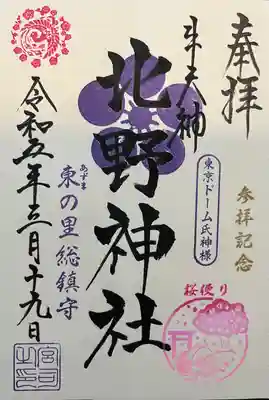 奉拝
参拝記念
牛天神
東京ドーム氏神様
桜便り
北野神社
あずま
東の里総鎮守
令和五年三月十九日